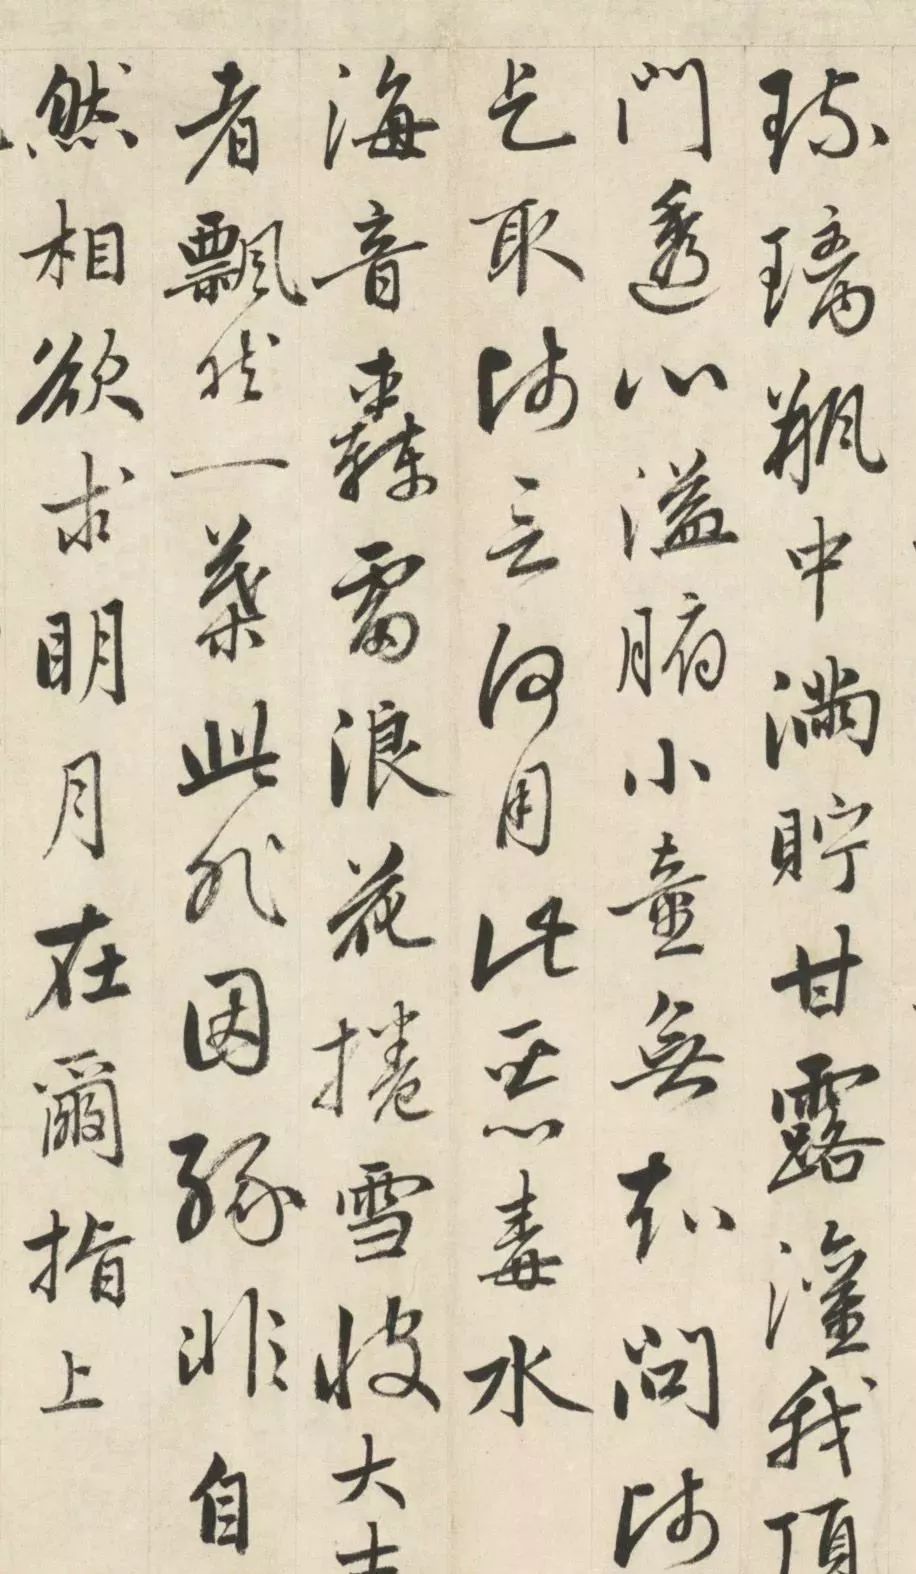 琉璃瓶中滿貯甘露灌我頂
門透心溢腑小童無知問師
乞取師言何用此惡毒水
海音轟雷浪花捲雪彼大士
者飄然一葉此非因緣非自
然相欲求明月在爾指上